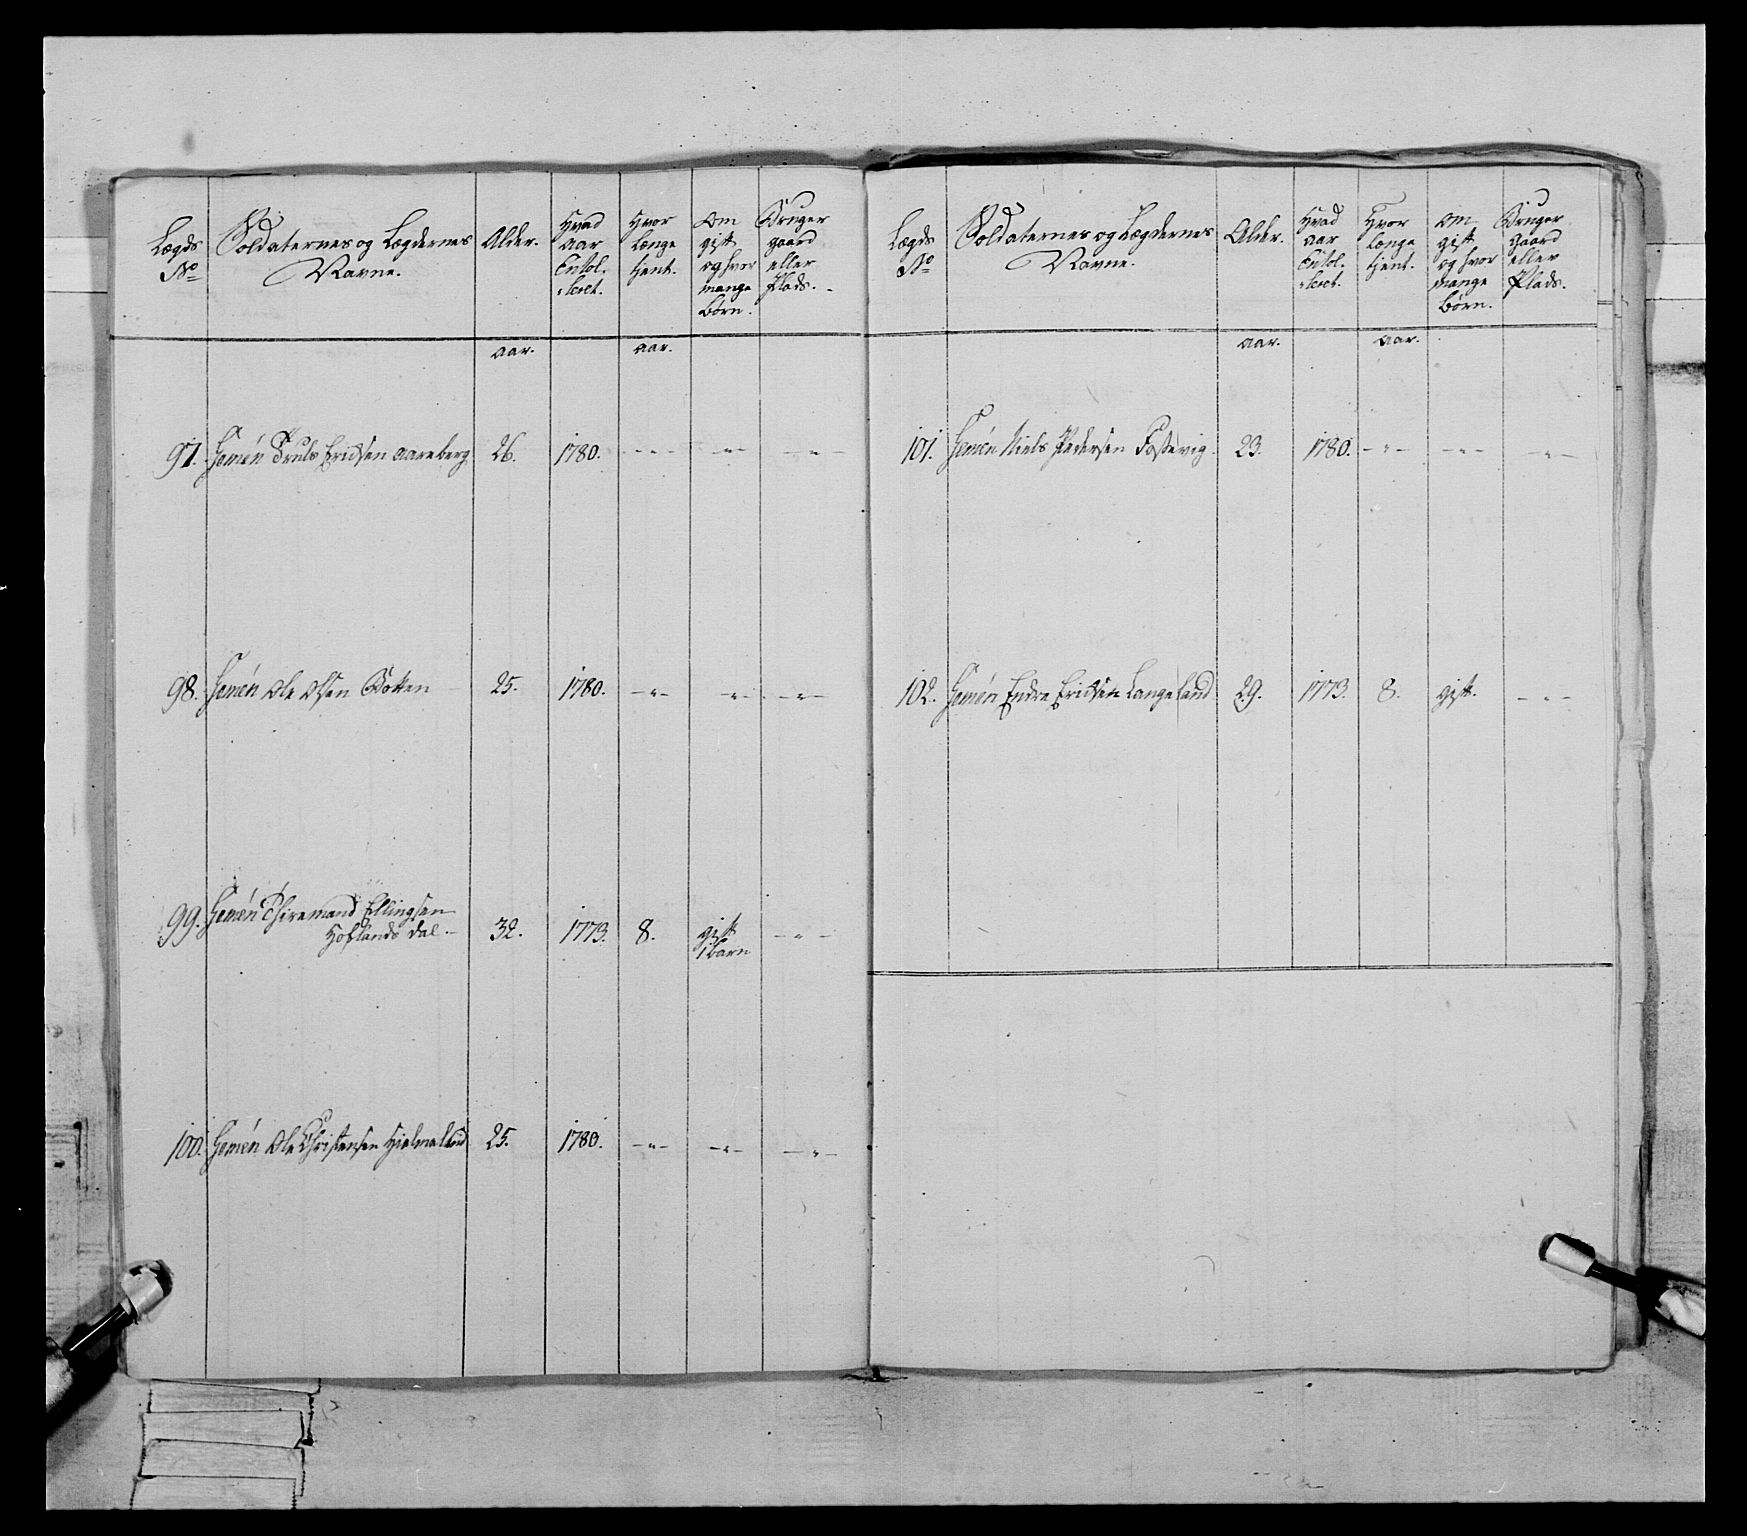 Lægds No
Soldaternes og Lægdernes Navne.
Alder.
Hvad aar Enrol-leret.
Hvor længe tient.
Om gift og hvor mange børn.
Bruger gaard eller Plads.
aar. aar.
97. Gemén Truls Erichsen Aareberg 26. 1780. -"- -"- -"-
98. Gemén Ole Olsen Botten 25. 1780. -"- -"- -"-
99. Gemén Thiremand Ellingsen
Hoflands dal 32. 1773. 8. gift
1 barn -"-
100. Gemén Ole Christensen Hielmeland 25. 1780. -"- -"- -"-
Lægds No
Soldaternes og Lægdernes Navne.
Alder.
Hvad aar Enrol-leret.
Hvor længe tient.
Om gift og hvor mange børn.
Bruger gaard eller Plads.
aar. aar.
101. Gemén Niels Pedersen Fossevig 23. 1780. -"- -"- -"-
102. Gemén Endre Erichsen Langeland 29. 1773. 8. gift. -"-